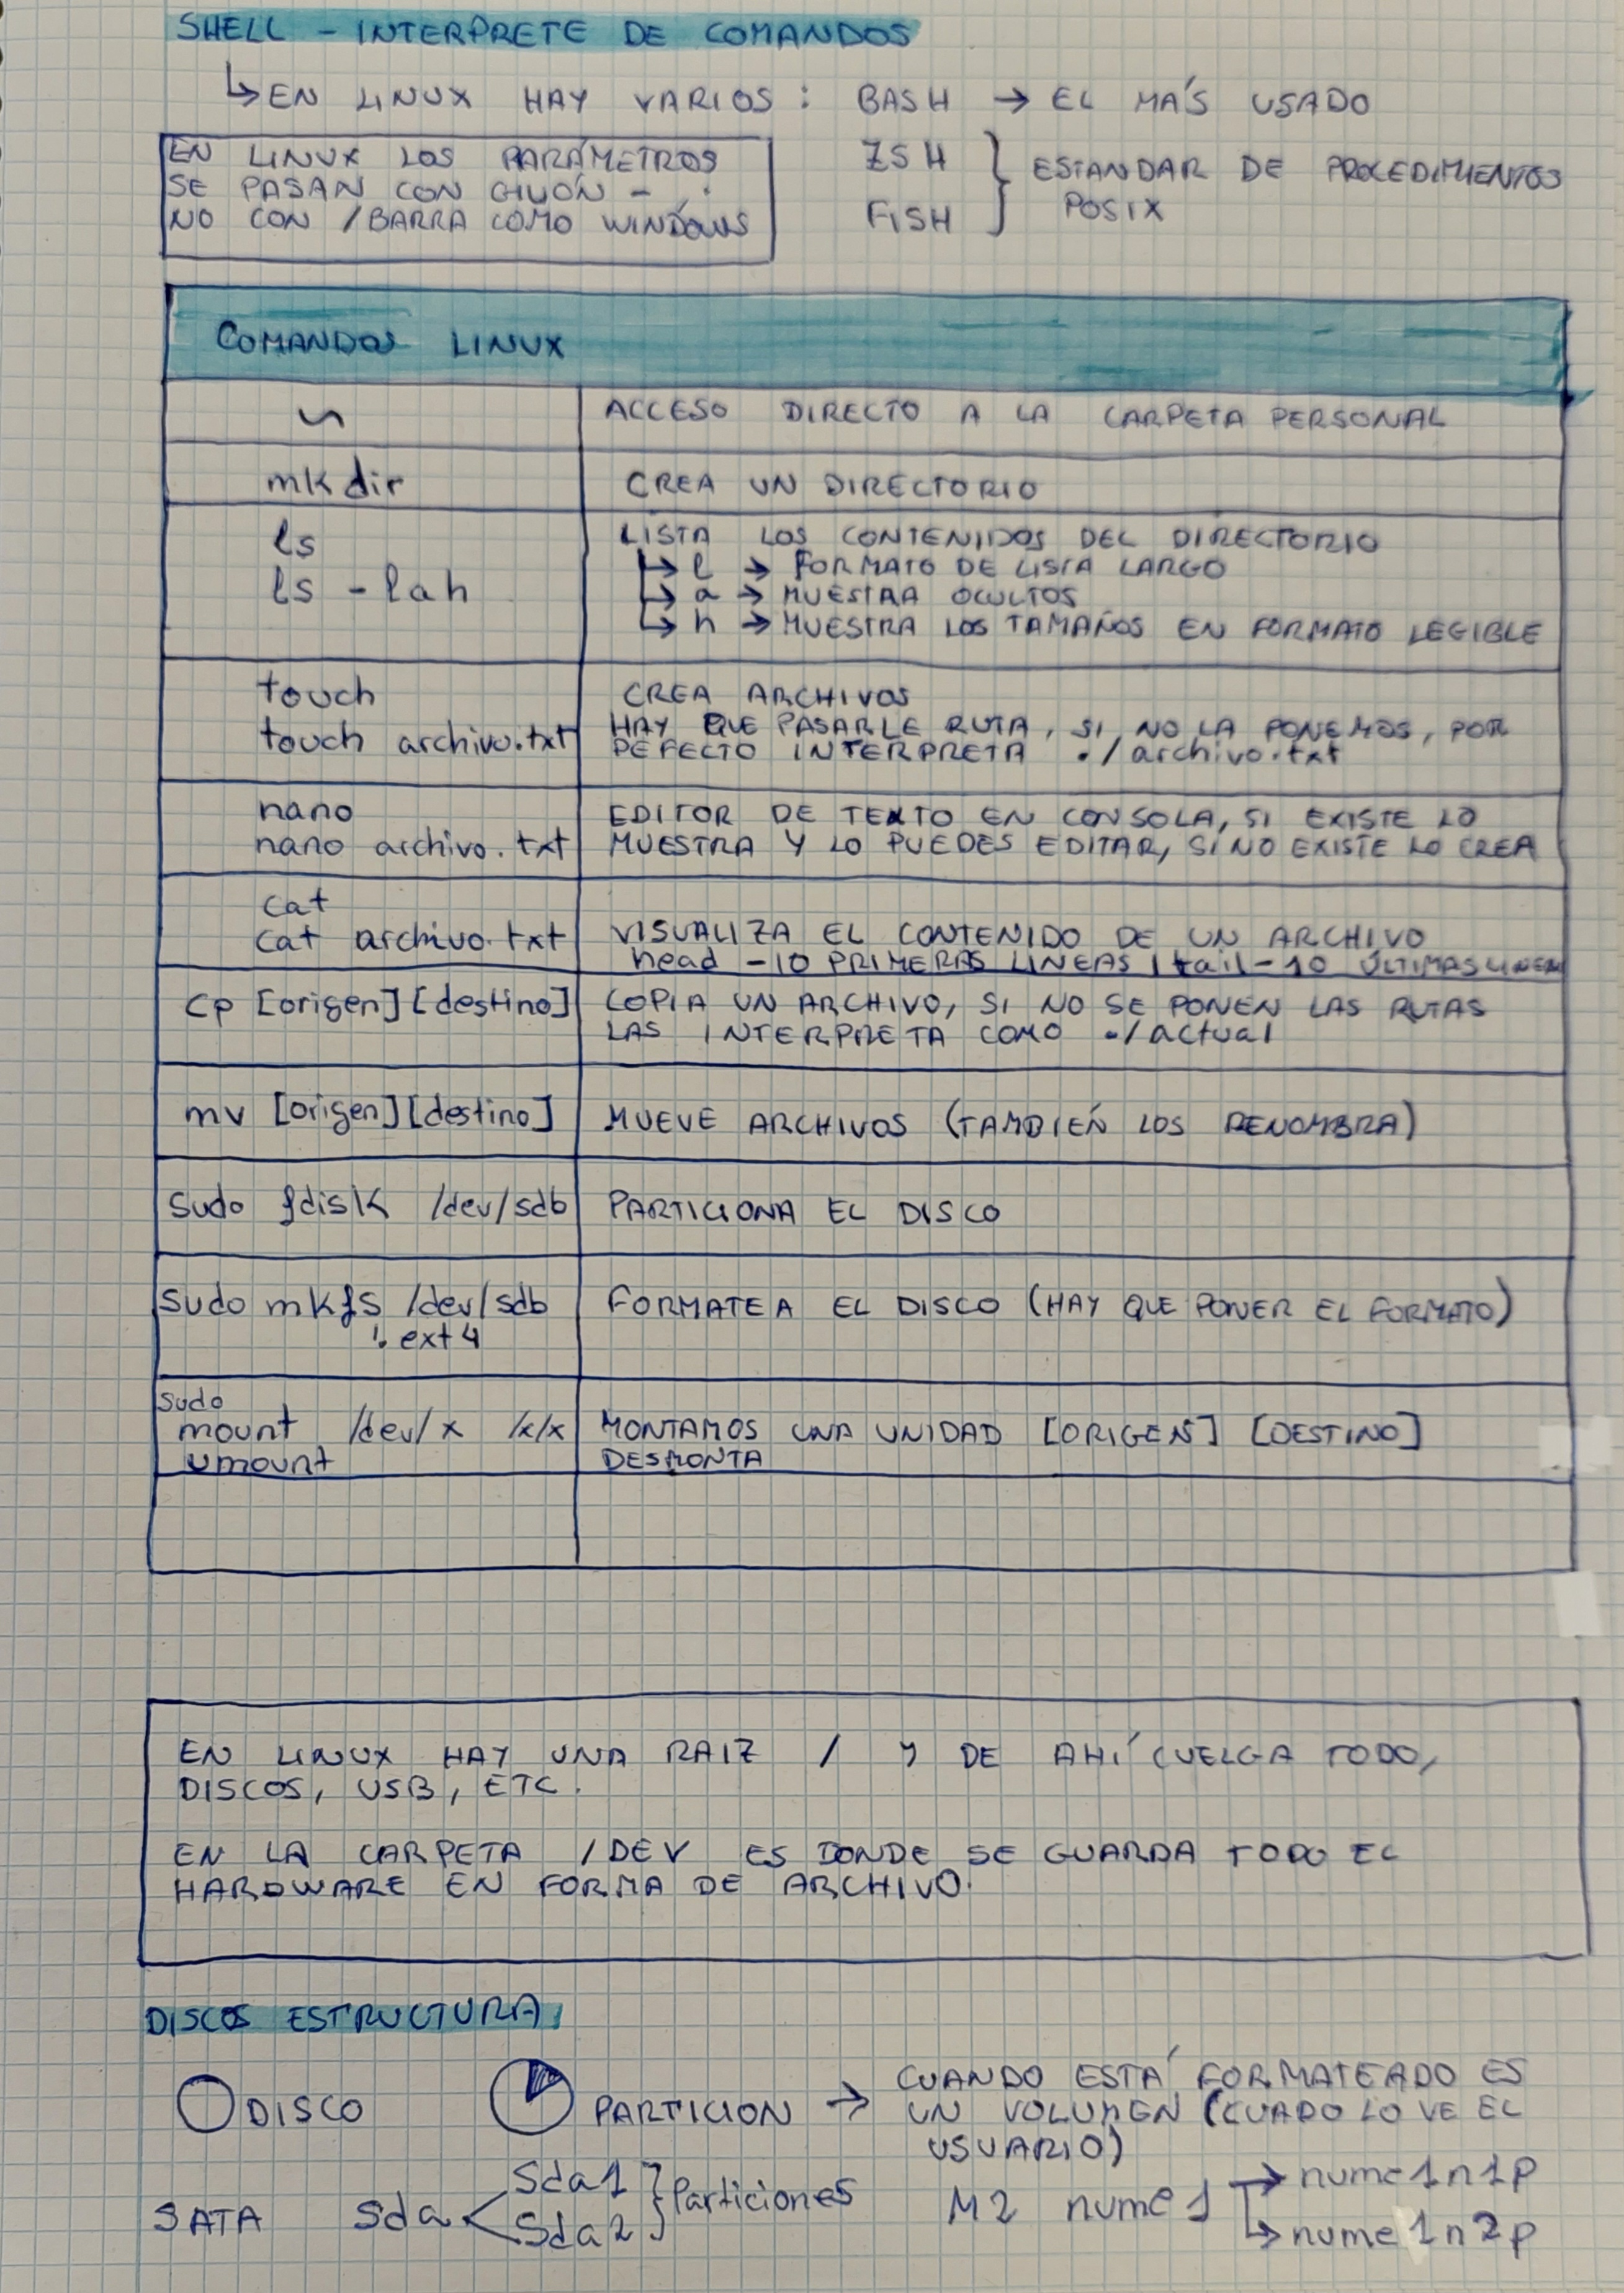 SHELL - INTERPRETE DE COMANDOS
↳ EN LINUX HAY VARIOS: BASH → EL MÁS USADO
EN LINUX LOS PARÁMETROS
SE PASAN CON GUIÓN -
NO CON /BARRA COMO WINDOWS
ZSH
FISH
ESTANDAR DE PROCEDIMIENTOS
POSIX
COMANDOS LINUX
~ ACCESO DIRECTO A LA CARPETA PERSONAL
mkdir CREA UN DIRECTORIO
ls
ls -lah
LISTA LOS CONTENIDOS DEL DIRECTORIO
↳ l → FORMATO DE LISTA LARGO
↳ a → MUESTRA OCULTOS
↳ h → MUESTRA LOS TAMAÑOS EN FORMATO LEGIBLE
touch
touch archivo.txt
CREA ARCHIVOS
HAY QUE PASARLE RUTA, SI NO LA PONEMOS, POR
DEFECTO INTERPRETA ./archivo.txt
nano
nano archivo.txt
EDITOR DE TEXTO EN CONSOLA, SI EXISTE LO
MUESTRA Y LO PUEDES EDITAR, SI NO EXISTE LO CREA
cat
cat archivo.txt
VISUALIZA EL CONTENIDO DE UN ARCHIVO
head -10 PRIMERAS LINEAS | tail -10 ÚLTIMAS LINEAS
cp [origen] [destino]
COPIA UN ARCHIVO, SI NO SE PONEN LAS RUTAS
LAS INTERPRETA COMO ./actual
mv [origen] [destino] MUEVE ARCHIVOS (TAMBIÉN LOS RENOMBRA)
sudo fdisk /dev/sdb PARTICIONA EL DISCO
sudo mkfs /dev/sdb FORMATEA EL DISCO (HAY QUE PONER EL FORMATO)
.ext4
sudo
mount /dev/x /x/x MONTAMOS UNA UNIDAD [ORIGEN] [DESTINO]
umount DESMONTA
EN LINUX HAY UNA RAIZ / Y DE AHÍ CUELGA TODO,
DISCOS, USB, ETC.
EN LA CARPETA /DEV ES DONDE SE GUARDA TODO EL
HARDWARE EN FORMA DE ARCHIVO.
DISCOS ESTRUCTURA
DISCO
PARTICION →
CUANDO ESTÁ FORMATEADO ES
UN VOLUMEN (CUADO LO VE EL
USUARIO)
SATA sda
sda1
sda2
Particiones
M2 nume1
→ nume1n1p
↳ nume1n2p